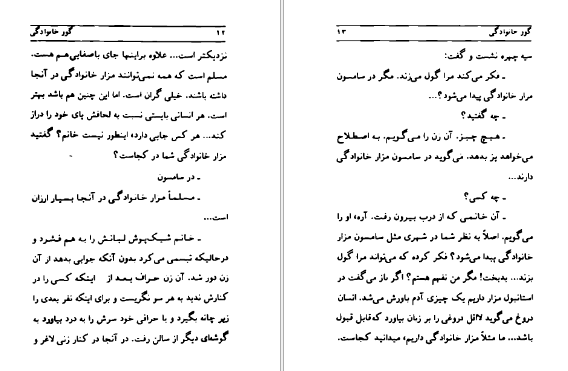 گور خانوادگی
۱۲
نزدیکتر است... علاوه براینها جای باصفایی هم هست.
مسلم است که همه نمی‌توانند مزار خانوادگی در آنجا
داشته باشند. خیلی گران است. اما این چنین هم باشد بهتر
است. هر انسانی بایستی نسبت به لحافش پای خود را دراز
کند... هر کس جایی دارد، اینطور نیست خانم؟ گفتید
مزار خانوادگی شما در کجاست؟
ـ در سامسون
ـ مسلماً مزار خانوادگی در آنجا بسیار ارزان
است...
ـ خانم شیک‌پوش لبانش را به هم فشرد و
درحالیکه تبسمی می‌کرد بدون آنکه جوابی بدهد از آن
زن دور شد. آن زن حراف بعد از اینکه کسی را در
کنارش ندید به هر سو نگریست و برای اینکه نفر بعدی را
زیر چانه بگیرد و با حرافی خود سرش را به درد بیاورد به
گوشه‌ای دیگر از سالن رفت. در آنجا در کنار زنی لاغر و
گور خانوادگی
۱۳
سیه چهره نشست و گفت:
ـ فکر می‌کند مرا گول می‌زند. مگر در سامسون
مزار خانوادگی پیدا می‌شود؟...
ـ چه گفتید؟
ـ هیچ چیز. آن زن را می‌گویم. به اصطلاح
می‌خواهد پز بدهد. می‌گوید در سامسون مزار خانوادگی
دارند...
ـ چه کسی؟
ـ آن خانمی که از درب بیرون رفت. آره، او را
می‌گویم. اصلاً به نظر شما در شهری مثل سامسون مزار
خانوادگی پیدا می‌شود؟ فکر کرده که می‌تواند مرا گول
بزند... بدبخت! مگر من نفهم هستم؟ اگر باز می‌گفت در
استانبول مزار داریم یک چیزی آدم باورش می‌شد. انسان
دروغ می‌گوید لااقل دروغی را بر زبان بیاورد که‌قابل قبول
باشد... ما مثلاً مزار خانوادگی داریم، میدانید کجاست.